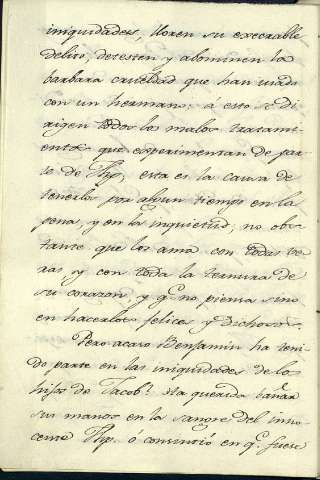 iniquidades, lloren su execrable
delito, detesten y abominen la
barbara crueldad que han usado
con un hermano: a esto se di
rigen todos los malos tratami
entos que esperimentan de par
te de Jhp; esta es la causa de
tenerlos por algun tiempo en la
pena, y en la inquietud; no obs
tante que los ama con todas ve
ras y con toda la ternura de
su corazon, y q.e no piensa sino
en hacerlos felices y dichosos.
Pero acaso Benjamin ha teni
do parte en las iniquidades de los
hijos de Jacob? Ha querido bañar
sus manos en la sangre del ino
cente Jhp. ó consintió en q.e fuese